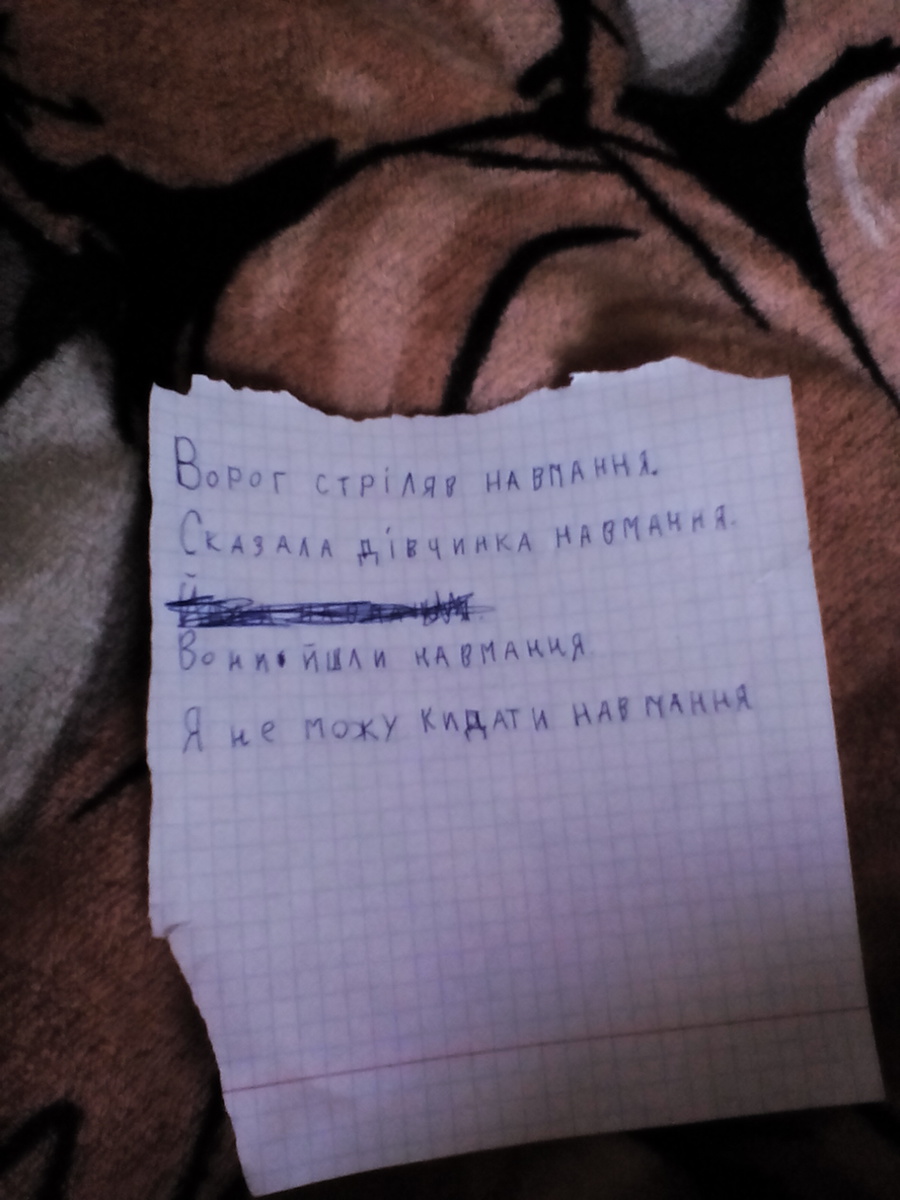 Ворог стріляв навмання.
Сказала дівчинка навмання.
Вони йшли навмання
Я не можу кидати навмання